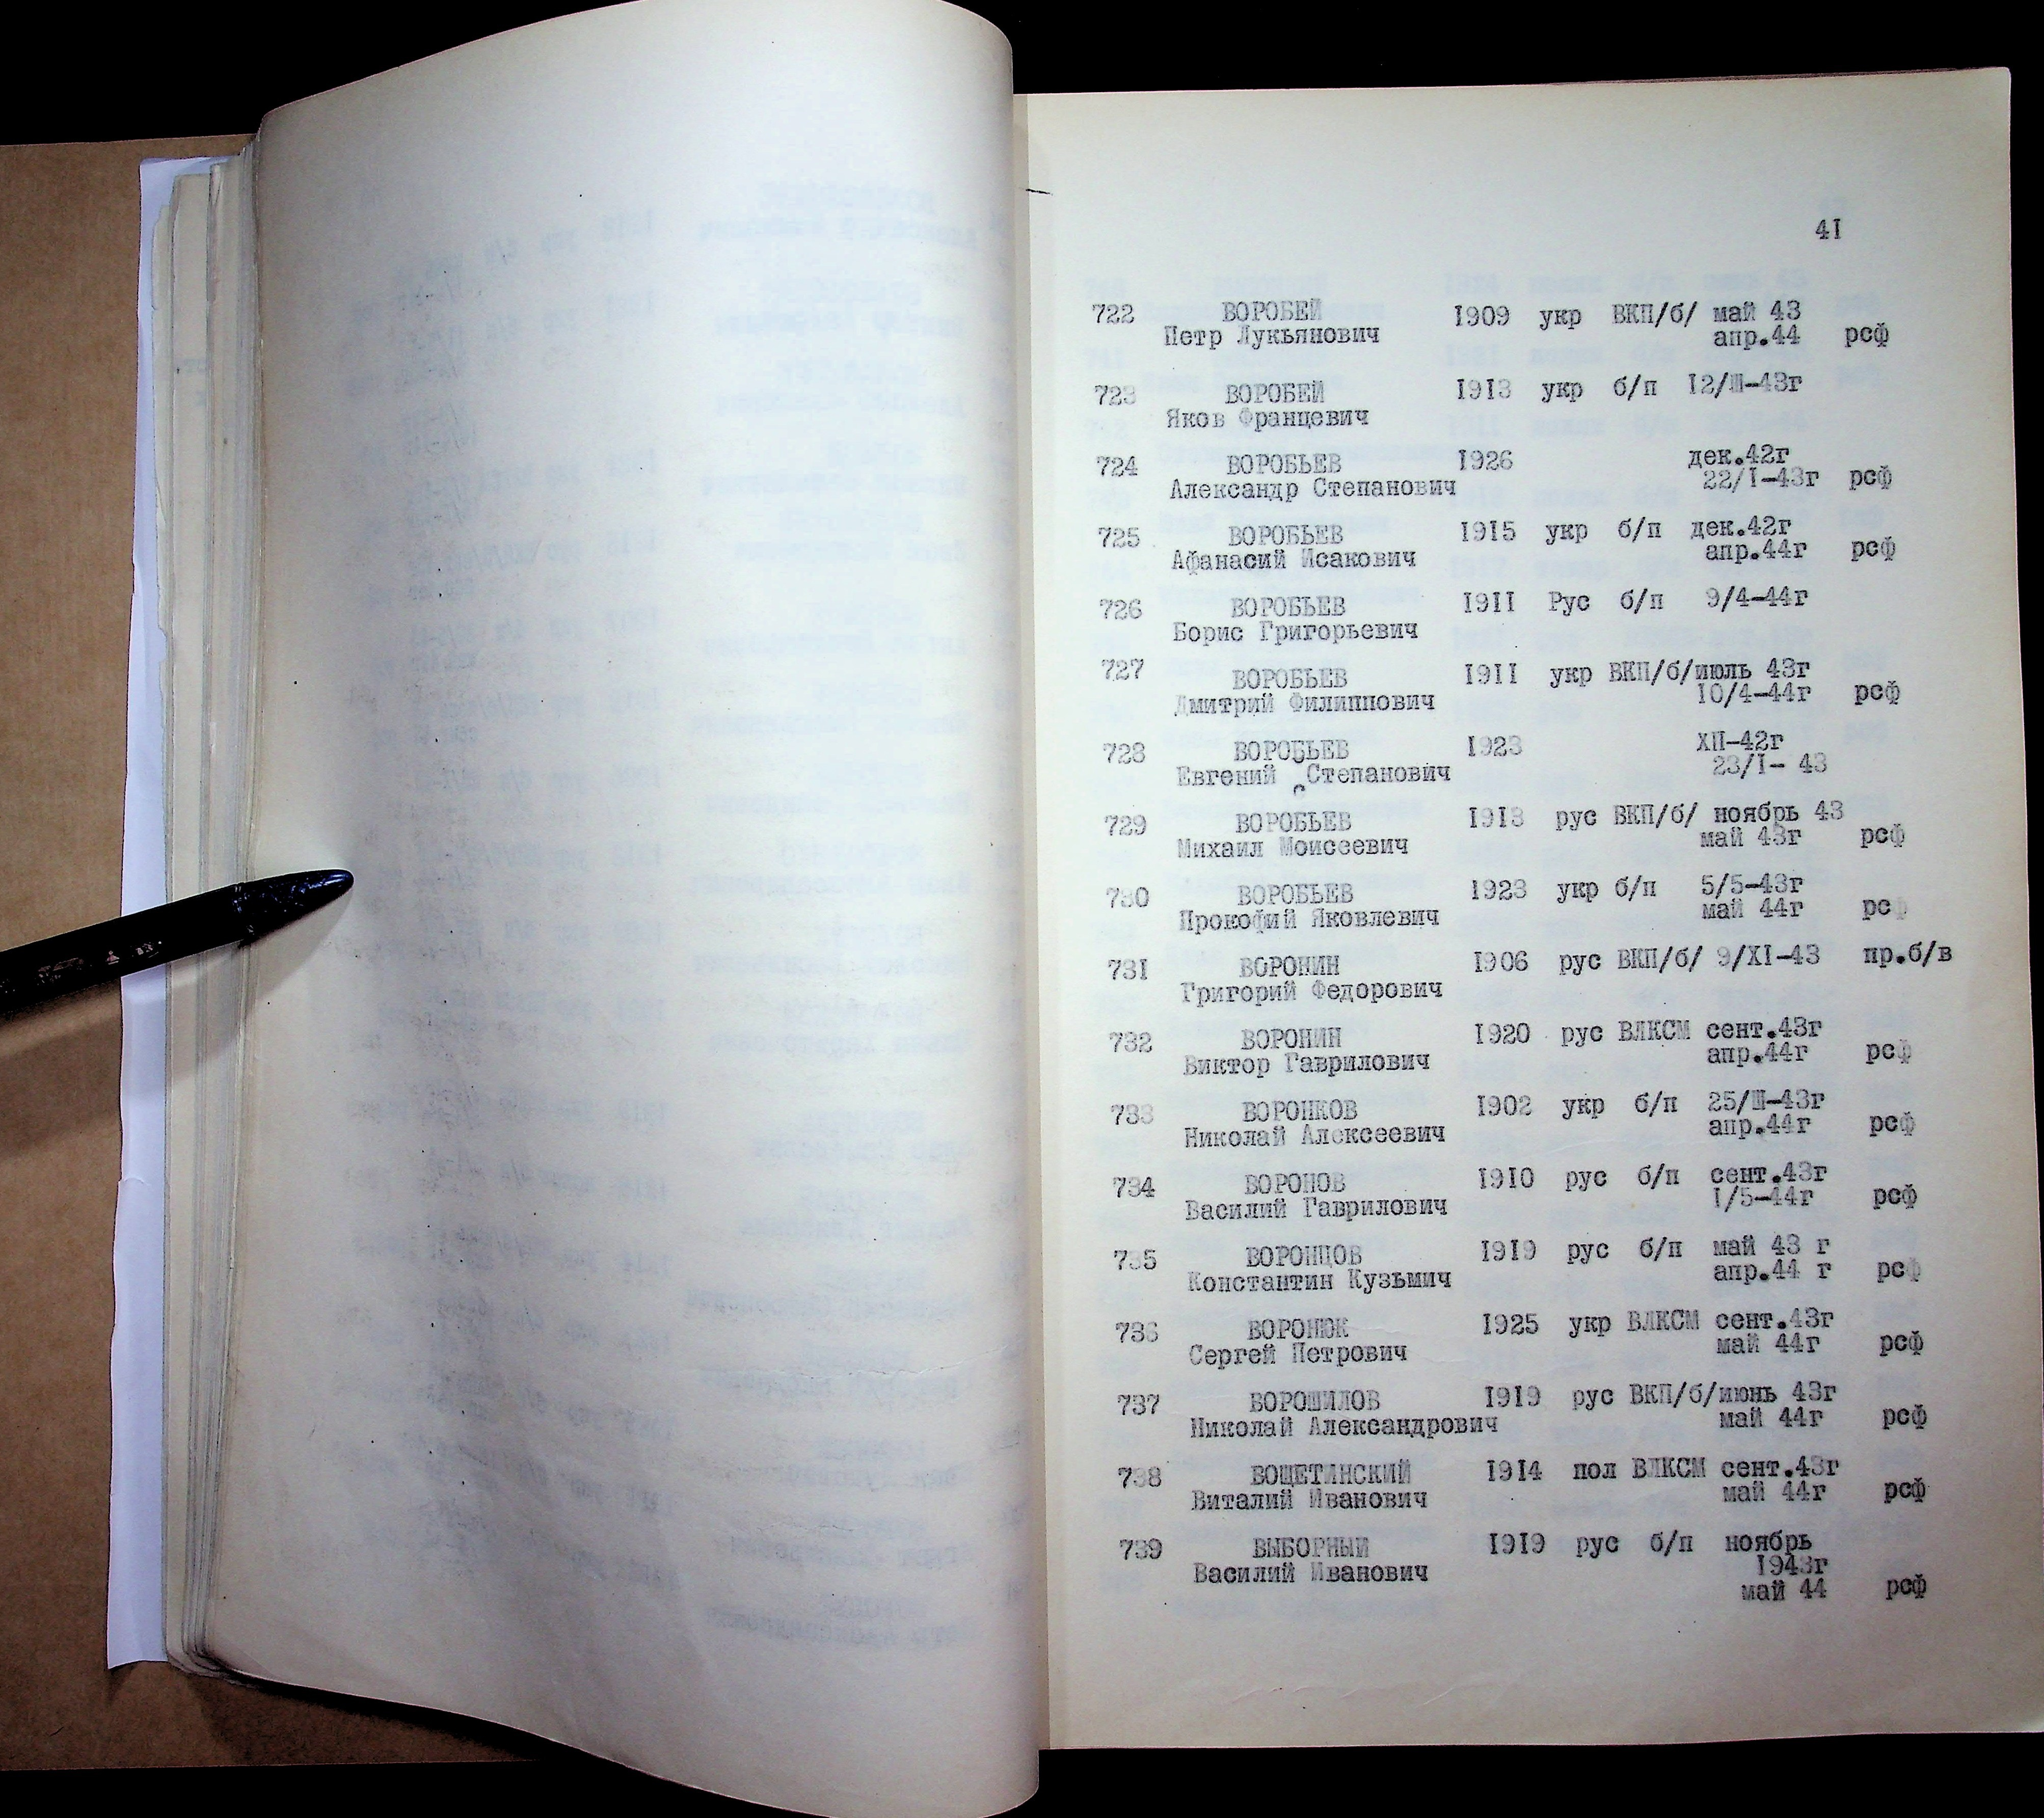 41
722 ВОРОБЕЙ 1909 укр ВКП/б/ май 43
Петр Лукьянович апр.44 рсф
723 ВОРОБЕЙ 1913 укр б/п 12/Ш-43г
Яков Францевич
724 ВОРОБЬЕВ 1926 дек.42г
Александр Степанович 22/I-43г рсф
725 ВОРОБЬЕВ 1915 укр б/п дек.42г
Афанасий Исакович апр.44г рсф
726 ВОРОБЬЕВ 1911 Рус б/п 9/4-44г
Борис Григорьевич
727 ВОРОБЬЕВ 1911 укр ВКП/б/июль 43г
Дмитрий Филиппович 10/4-44г рсф
728 ВОРОБЬЕВ 1923 ХП-42г
Евгений Степанович 23/I- 43
729 ВОРОБЬЕВ 1913 рус ВКП/б/ ноябрь 43
Михаил Моисеевич май 43г рсф
730 ВОРОБЬЕВ 1923 укр б/п 5/5-43г
Прокофий Яковлевич май 44г рсф
731 ВОРОНИН 1906 рус ВКП/б/ 9/XI-43 пр.б/в
Григорий Федорович
732 ВОРОНИН 1920 рус ВЛКСМ сент.43г
Виктор Гаврилович апр.44г рсф
733 ВОРОНКОВ 1902 укр б/п 25/Ш-43г
Николай Алексеевич апр.44г рсф
734 ВОРОНОВ 1910 рус б/п сент.43г
Василий Гаврилович 1/5-44г рсф
735 ВОРОНЦОВ 1919 рус б/п май 43 г
Константин Кузьмич апр.44 г рсф
736 ВОРОНЮК 1925 укр ВЛКСМ сент.43г
Сергей Петрович май 44г рсф
737 ВОРОШИЛОВ 1919 рус ВКП/б/июнь 43г
Николай Александрович май 44г рсф
738 ВОЩЕТАНСКИЙ 1914 пол ВЛКСМ сент.43г
Виталий Иванович май 44г рсф
739 ВЫБОРНЫЙ 1919 рус б/п ноябрь
Василий Иванович 1943г
май 44 рсф